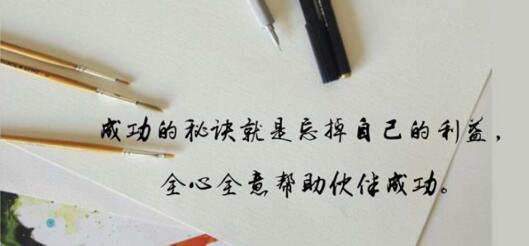 成功的秘诀就是忘掉自己的利益，
全心全意帮助伙伴成功。